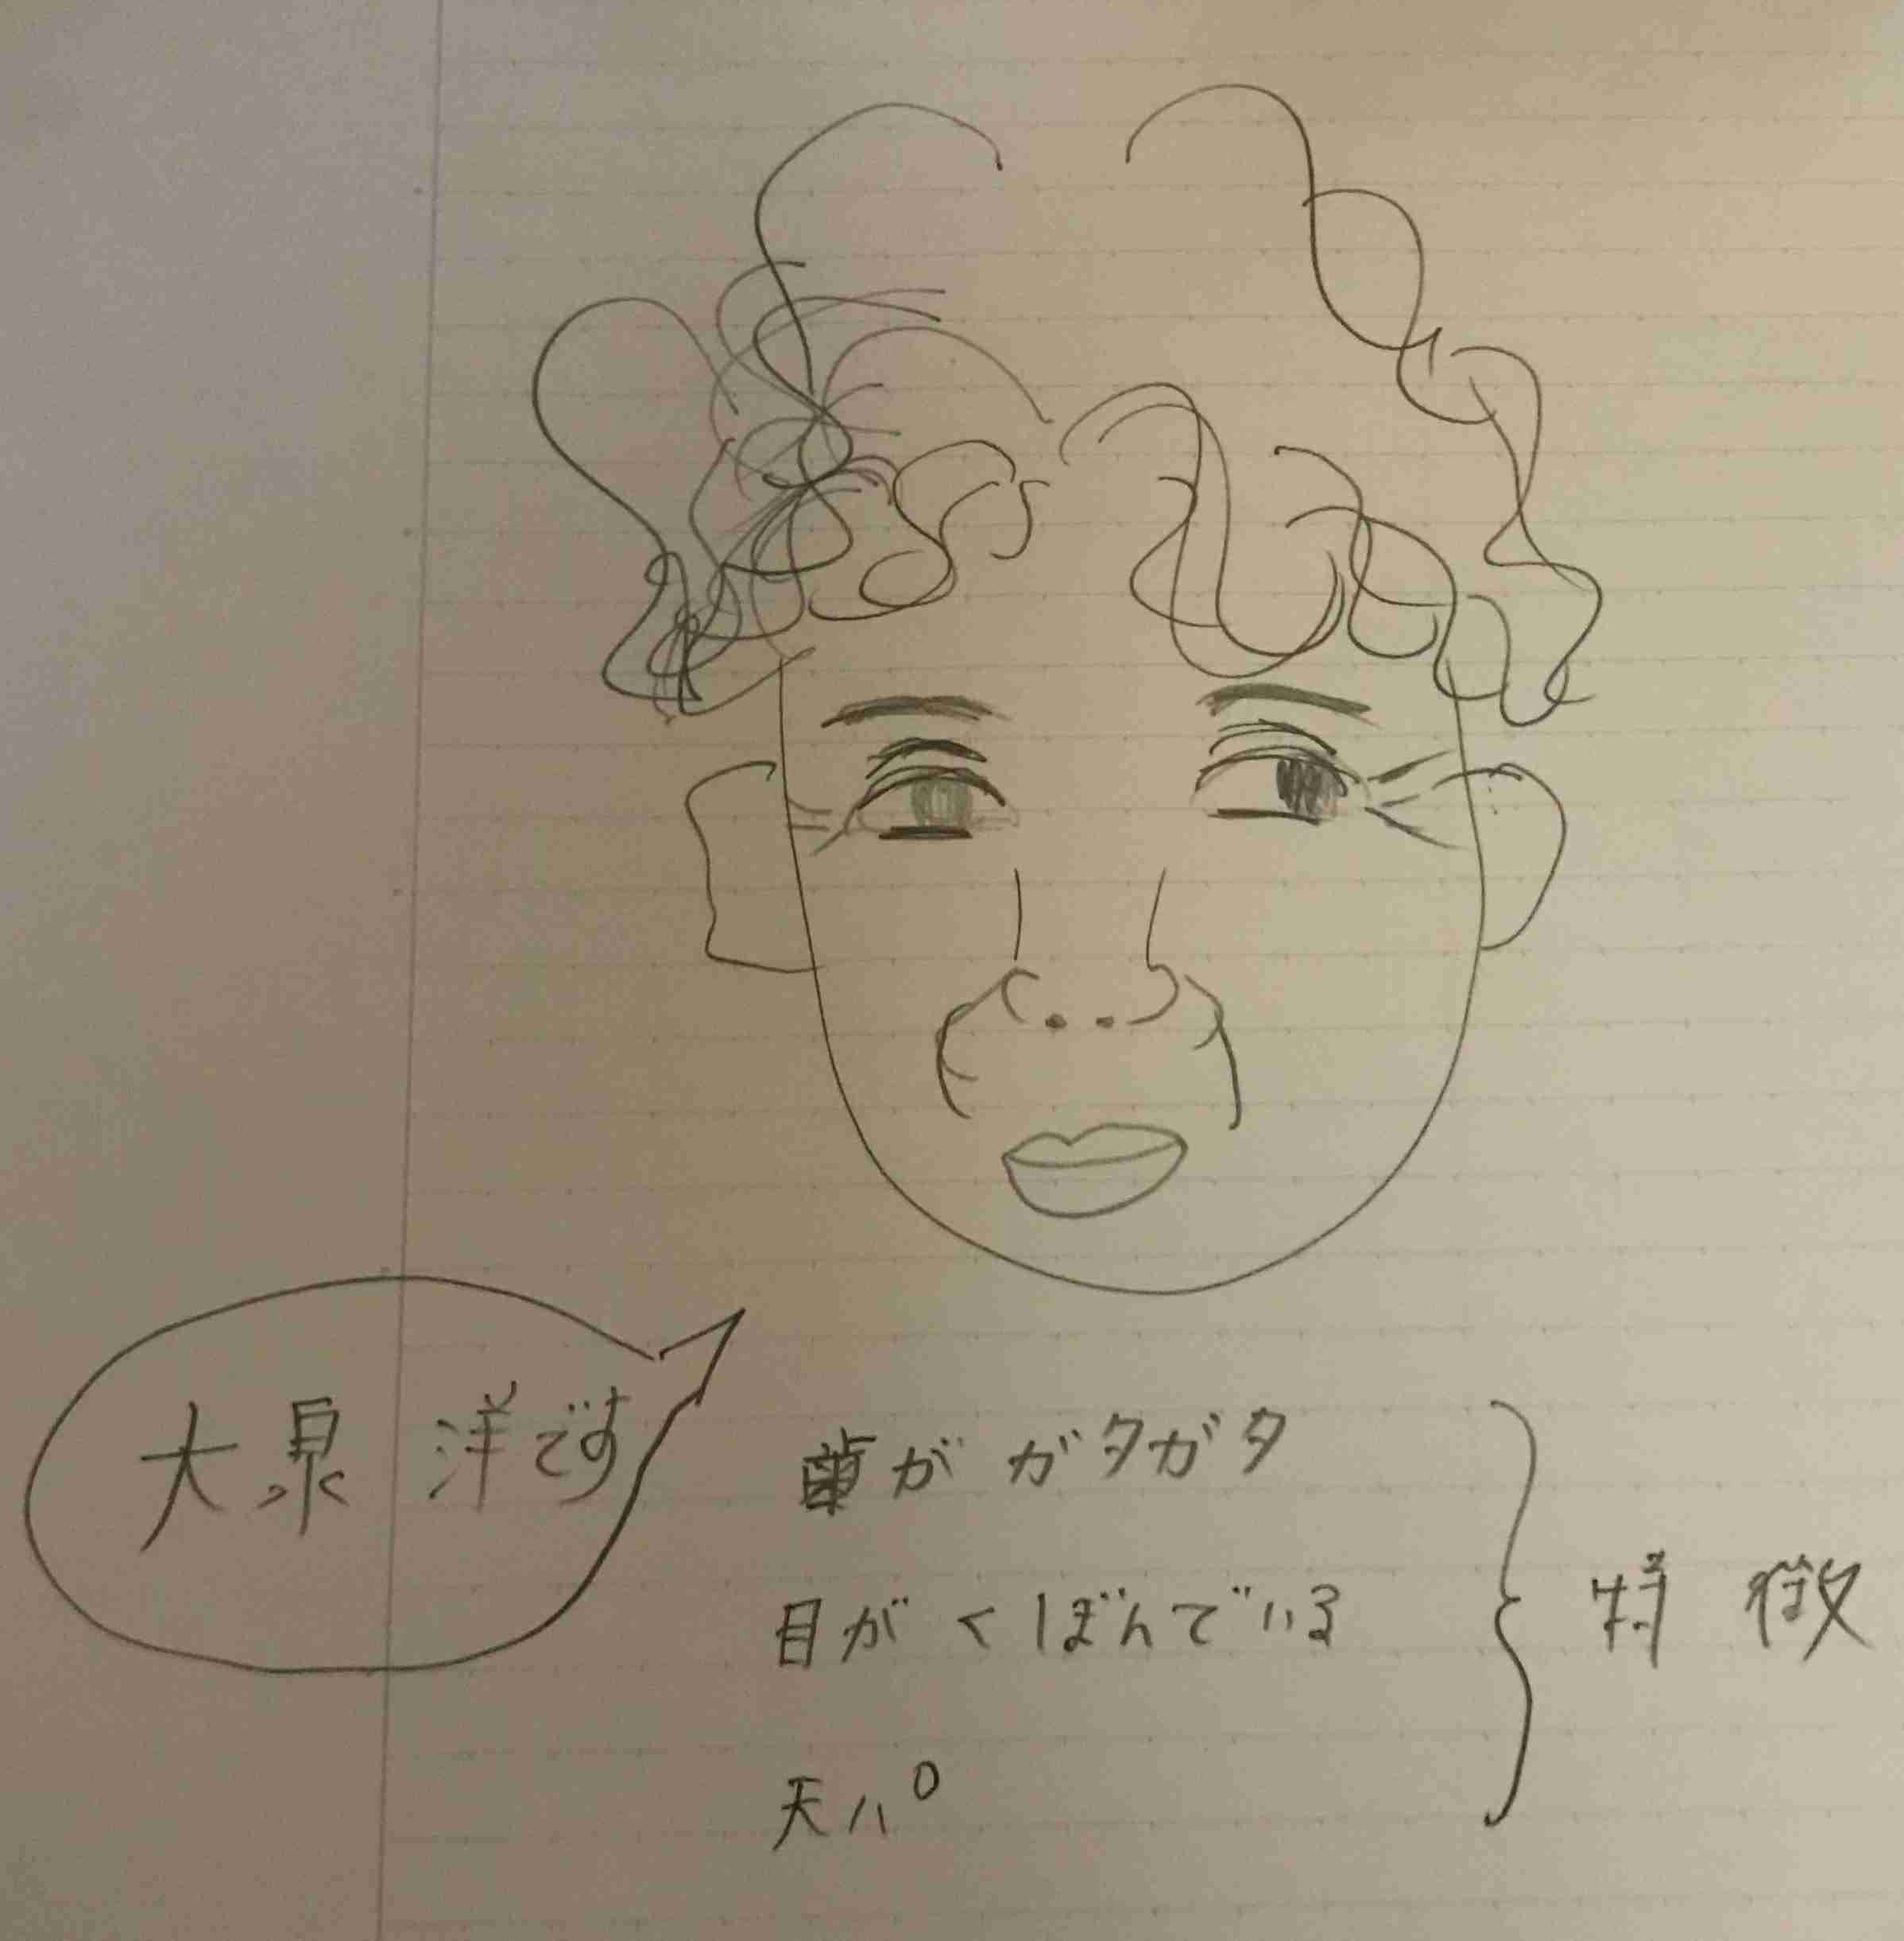 大泉 洋です
歯が ガタガタ
目が くぼんでいる
天パ
特徴